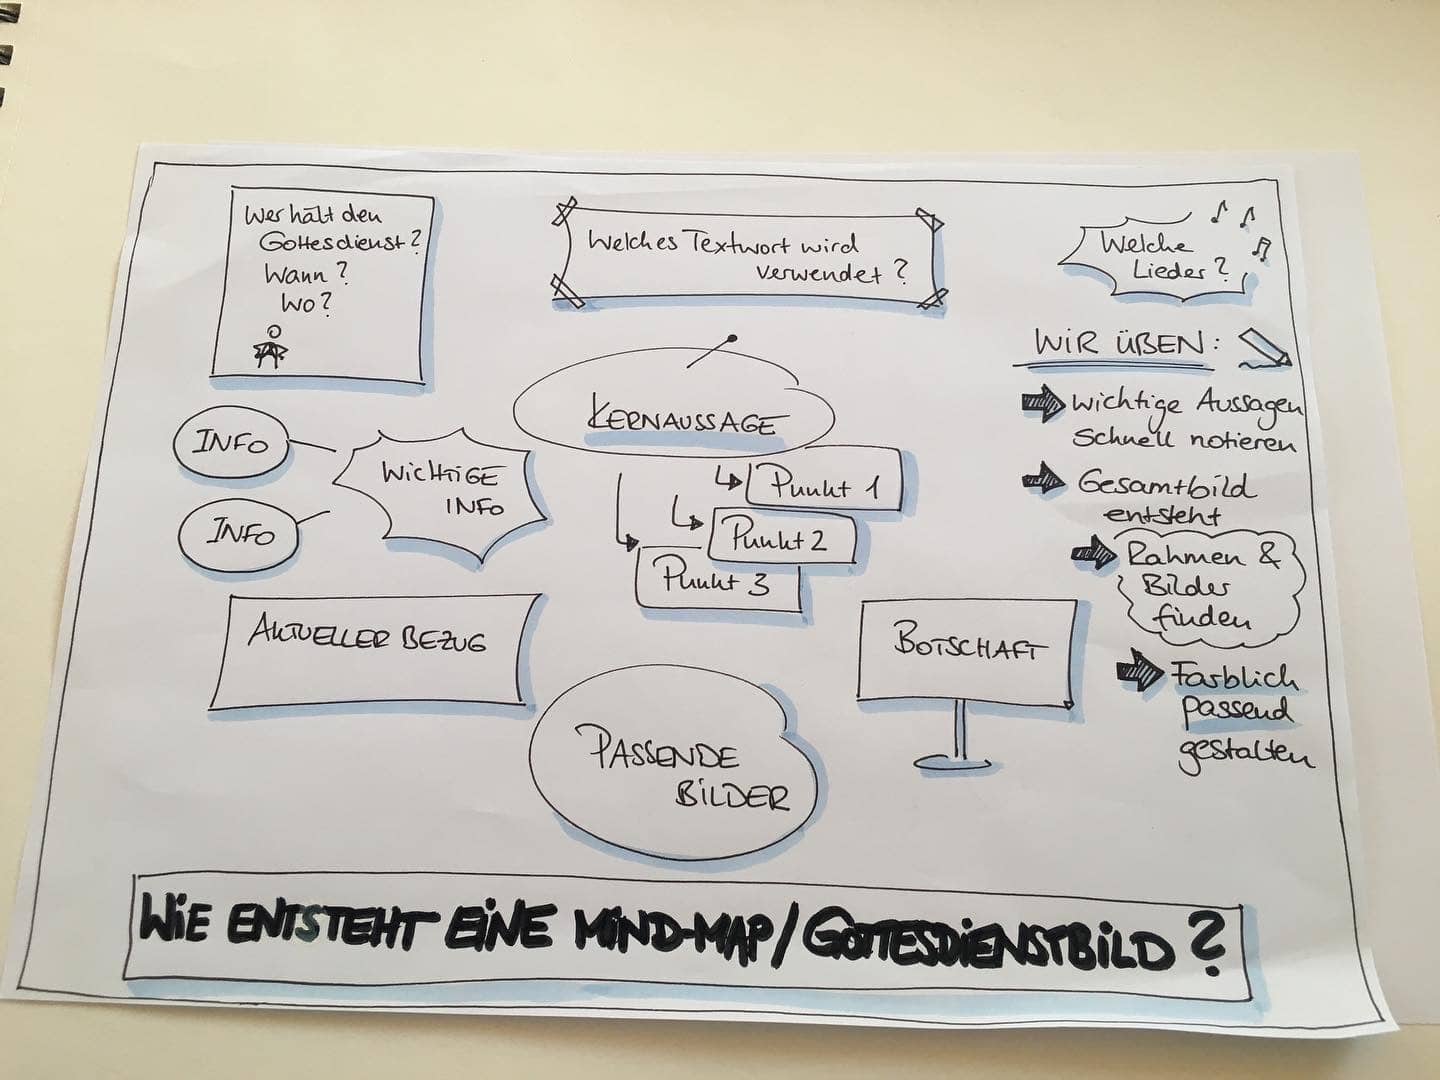 Wer hält den
Gottesdienst?
Wann?
Wo?
Welches Textwort wird
verwendet?
Welche
Lieder?
KERNAUSSAGE
Punkt 1
Punkt 2
Punkt 3
INFO
INFO
WICHTIGE
INFO
AKTUELLER BEZUG
PASSENDE
BILDER
BOTSCHAFT
WIR ÜBEN:
wichtige Aussagen
schnell notieren
Gesamtbild
entsteht
Rahmen &
Bilder
finden
Farblich
passend
gestalten
WIE ENTSTEHT EINE MIND-MAP/GOTTESDIENSTBILD?